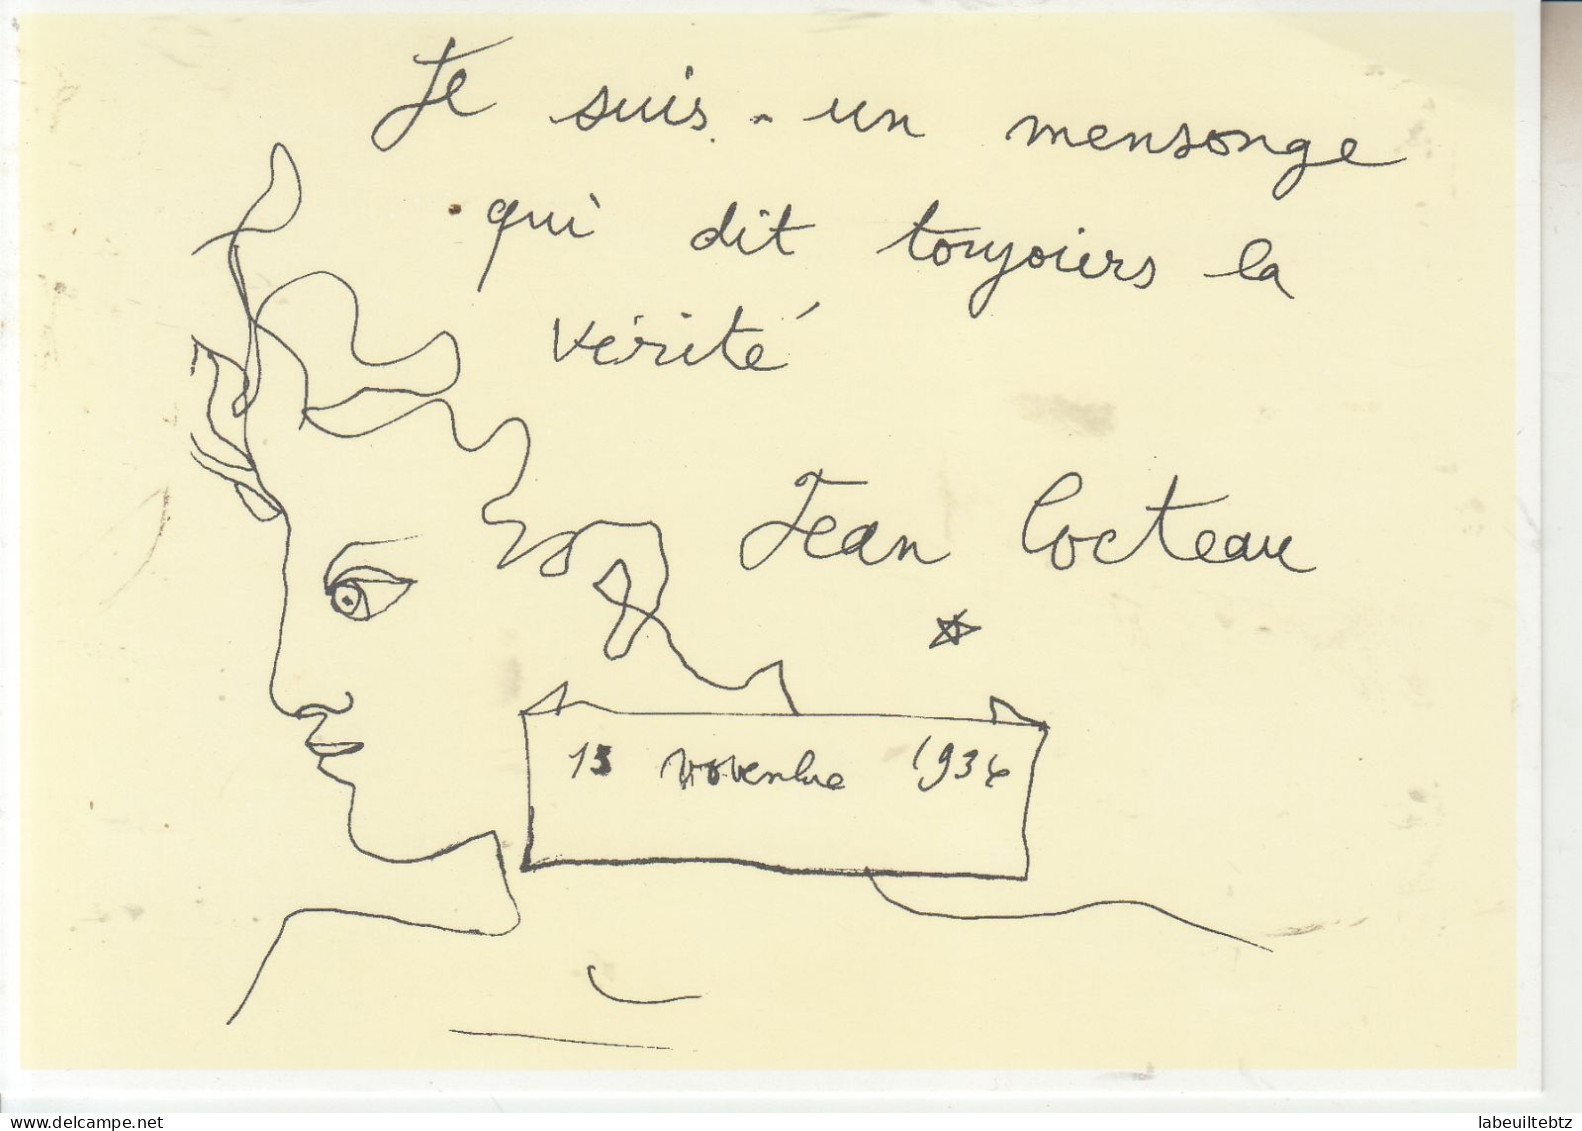 Je suis - un mensonge
qui dit toujours la
vérité
Jean Cocteau
13 novembre 1934
www.delcampe.net
labeuiltebtz